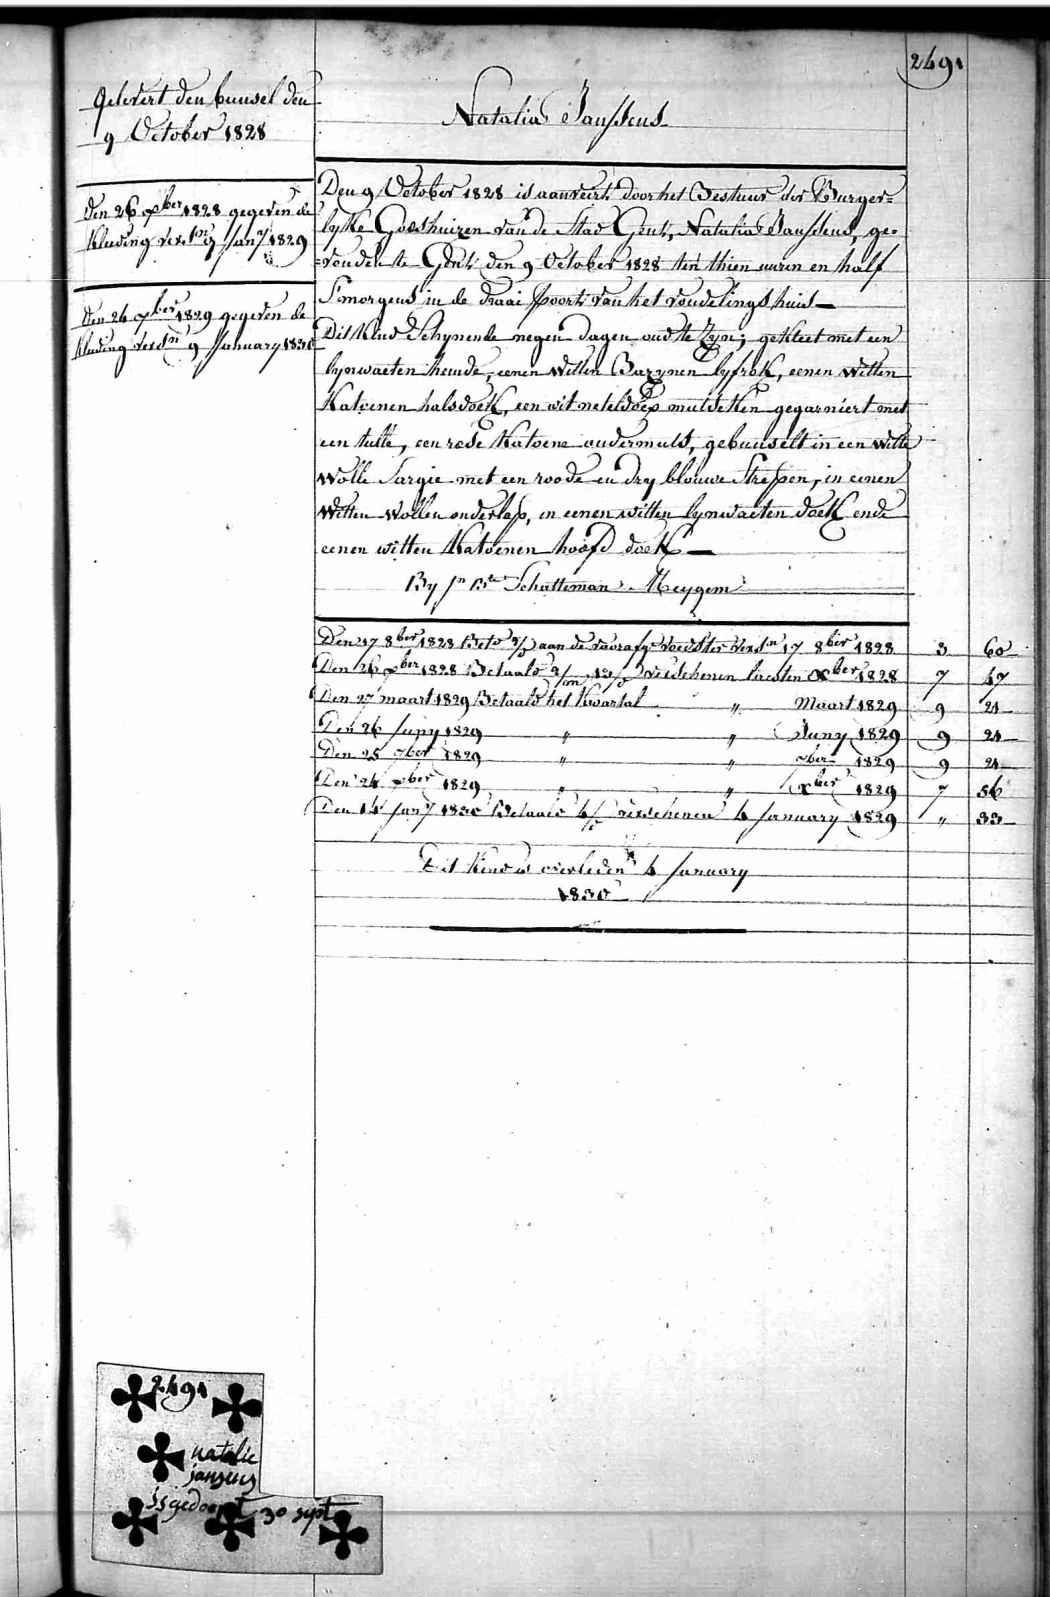 2491
Gelevert den bunsel den
9 October 1828
Natalia Janssens
den 26 xber 1828 gegeven de
kleeding versn 9 Jany 1829
Den 24 xber 1829 gegeven de
kleeding versn 9 January 1830
Den 9 October 1828 is aanveirt door het Bestuur der Burger=
lyke Godshuizen van de Stad Gent, Natalia Janssens, ge=
=vonden te Gent den 9 October 1828 ten thien uuren en half
Smorgens in de draai poort van het vondelingshuis
Dit Kind Schynende negen dagen oud te Zyn, gekleet met een
lynwaeten hemde, eenen Witten Bazynen lyfrok, eenen Witten
Katoenen halsdoek, een wit neteldoex mutsken gegarniert met
een tulle, een rode Katoene ondermuts, gebunselt in een Witte
Wolle Sargie met een roode en dry blouwe Strepen, in eenen
Witten Wollen onderlap, in eenen witten lynwaeten doek ende
eenen witten Katoenen hoofd doek
By Jn Bte Schatteman Meygem
Den 17 8ber 1828 Beto aan de voorafge voedster versn 17 8ber 1828 3 60
Den 26 xber 1828 Betaald verschenen laesten xber 1828 7 47
Den 27 maart 1829 Betaald het Kwartal " Maart 1829 9 21
Den 26 Juny 1829 " " Juny 1829 9 21
Den 25 7ber 1829 " " 7ber 1829 9 21
Den 24 xber 1829 " " xber 1829 7 56
Den 14 Jany 1830 Betaald verschenen 4 January 1829 " 33
Dit Kind is overleden 4 January
1830
2491
natalie
jansens
is gedoopt 30 sept